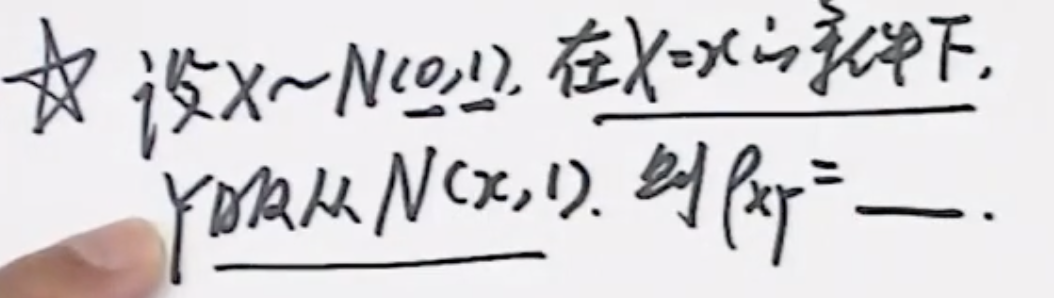 ☆ 设X~N(0,1). 在X=x的条件下,
Y服从N(x,1). 则ρxy=___.